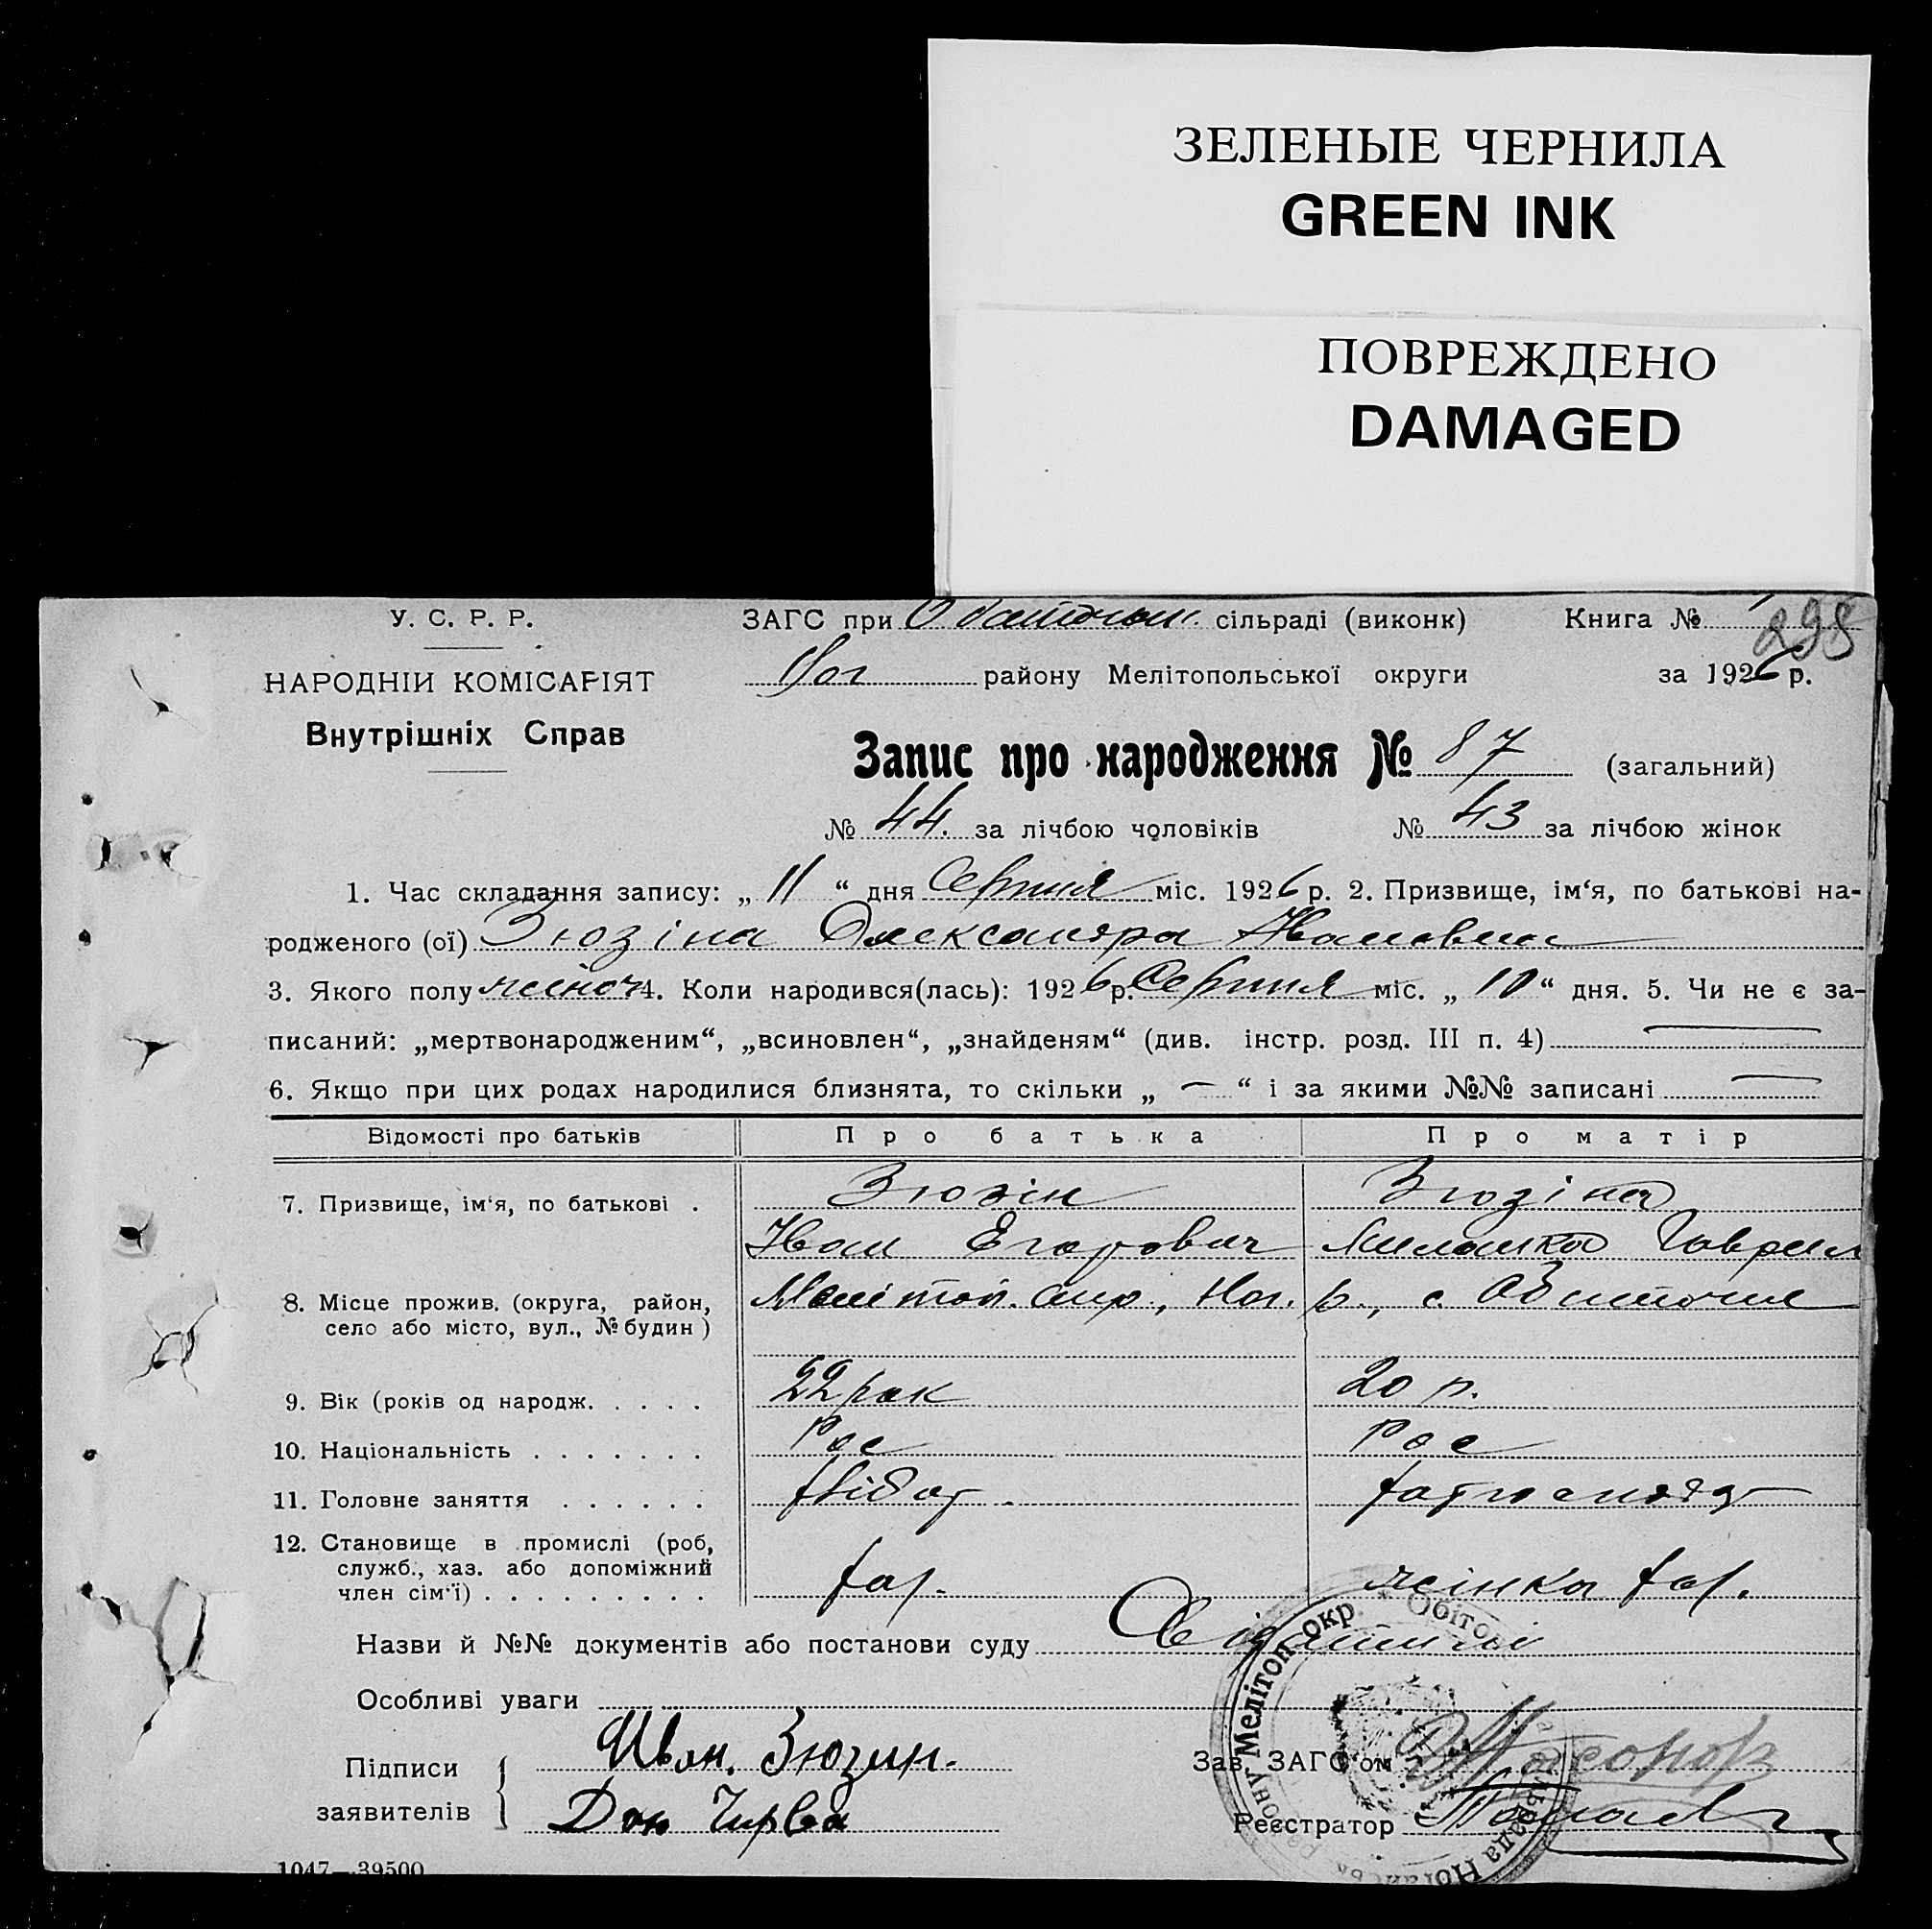 ЗЕЛЕНЫЕ ЧЕРНИЛА
GREEN INK
ПОВРЕЖДЕНО
DAMAGED
У. С. Р. Р.
НАРОДНІЙ КОМІСАРІЯТ
Внутрішніх Справ
ЗАГС при сільраді (виконк) Книга №
298
Ног району Мелітопольської округи за 1926 р.
Запис про народження № 87 (загальний)
№ 44. за лічбою чоловіків № 43 за лічбою жінок
1. Час складання запису: „ 11 “ дня Серпня міс. 1926 р. 2. Призвище, ім‘я, по батькові на-
родженого (ої) Зюзіна Олександра Ивановна
3. Якого полу жіноч 4. Коли народився(лась): 1926 р. Серпня міс. „ 10 “ дня. 5. Чи не є за-
писаний: „мертвонародженим“, „всиновлен“, „знайденям“ (див. інстр. розд. III п. 4) —
6. Якщо при цих родах народилися близнята, то скільки „ — “ і за якими №№ записані —
Відомості про батьків Про батька Про матір
7. Призвище, ім‘я, по батькові . Зюзін Зюзіна
Иван Егорович Миланка Гаврил
8. Місце прожив. (округа, район, Мелітоп. окр, Ног. р., с. Обиточне
село або місто, вул., № будин )
9. Вік (років од народж. . . . . 22 рок 20 р.
10. Національність . . . . . . . Рос Рос
11. Головне заняття . . . . . . хлібор. хатня
12. Становище в промислі (роб,
служб., хаз. або допоміжний
член сім‘ї) . . . . . . . . . . хаз. жінка хаз.
Назви й №№ документів або постанови суду
Особливі уваги
Підписи Иван. Зюзин. Зав. ЗАГС‘ом
заявителів Чирва Реєстратор
Мелітоп. окр. Обіто
1047—39500